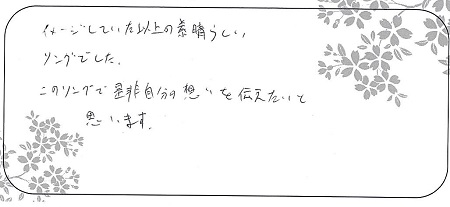 イメージしていた以上の素晴らしい
リングでした。
このリングで是非自分の想いを伝えたいと
思います。